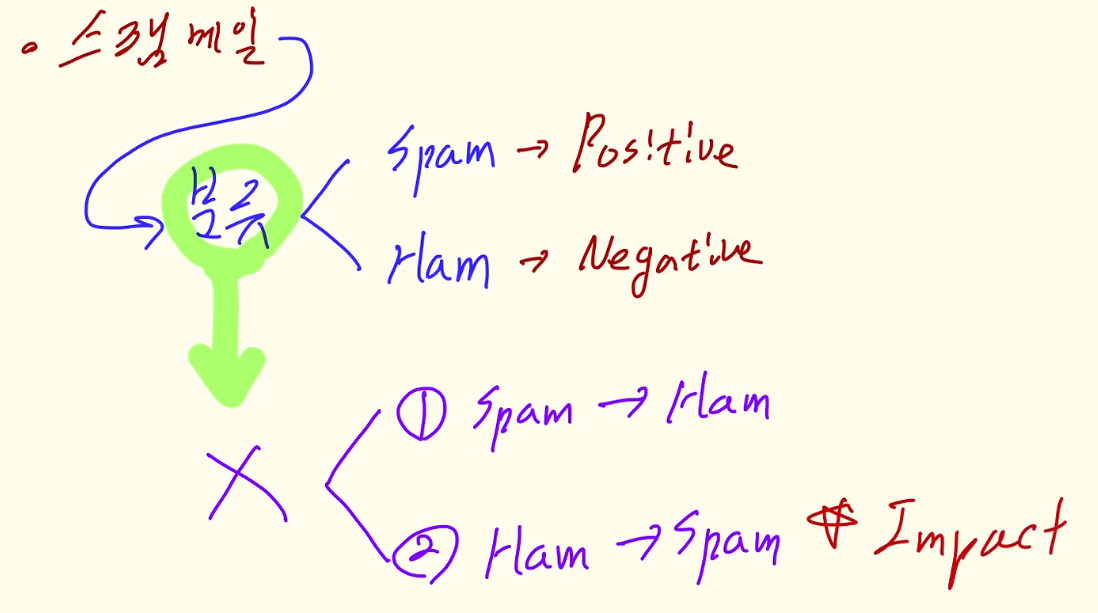 • 스팸 메일
분류
Spam → Positive
Ham → Negative
X
① Spam → Ham
② Ham → Spam ☆ Impact